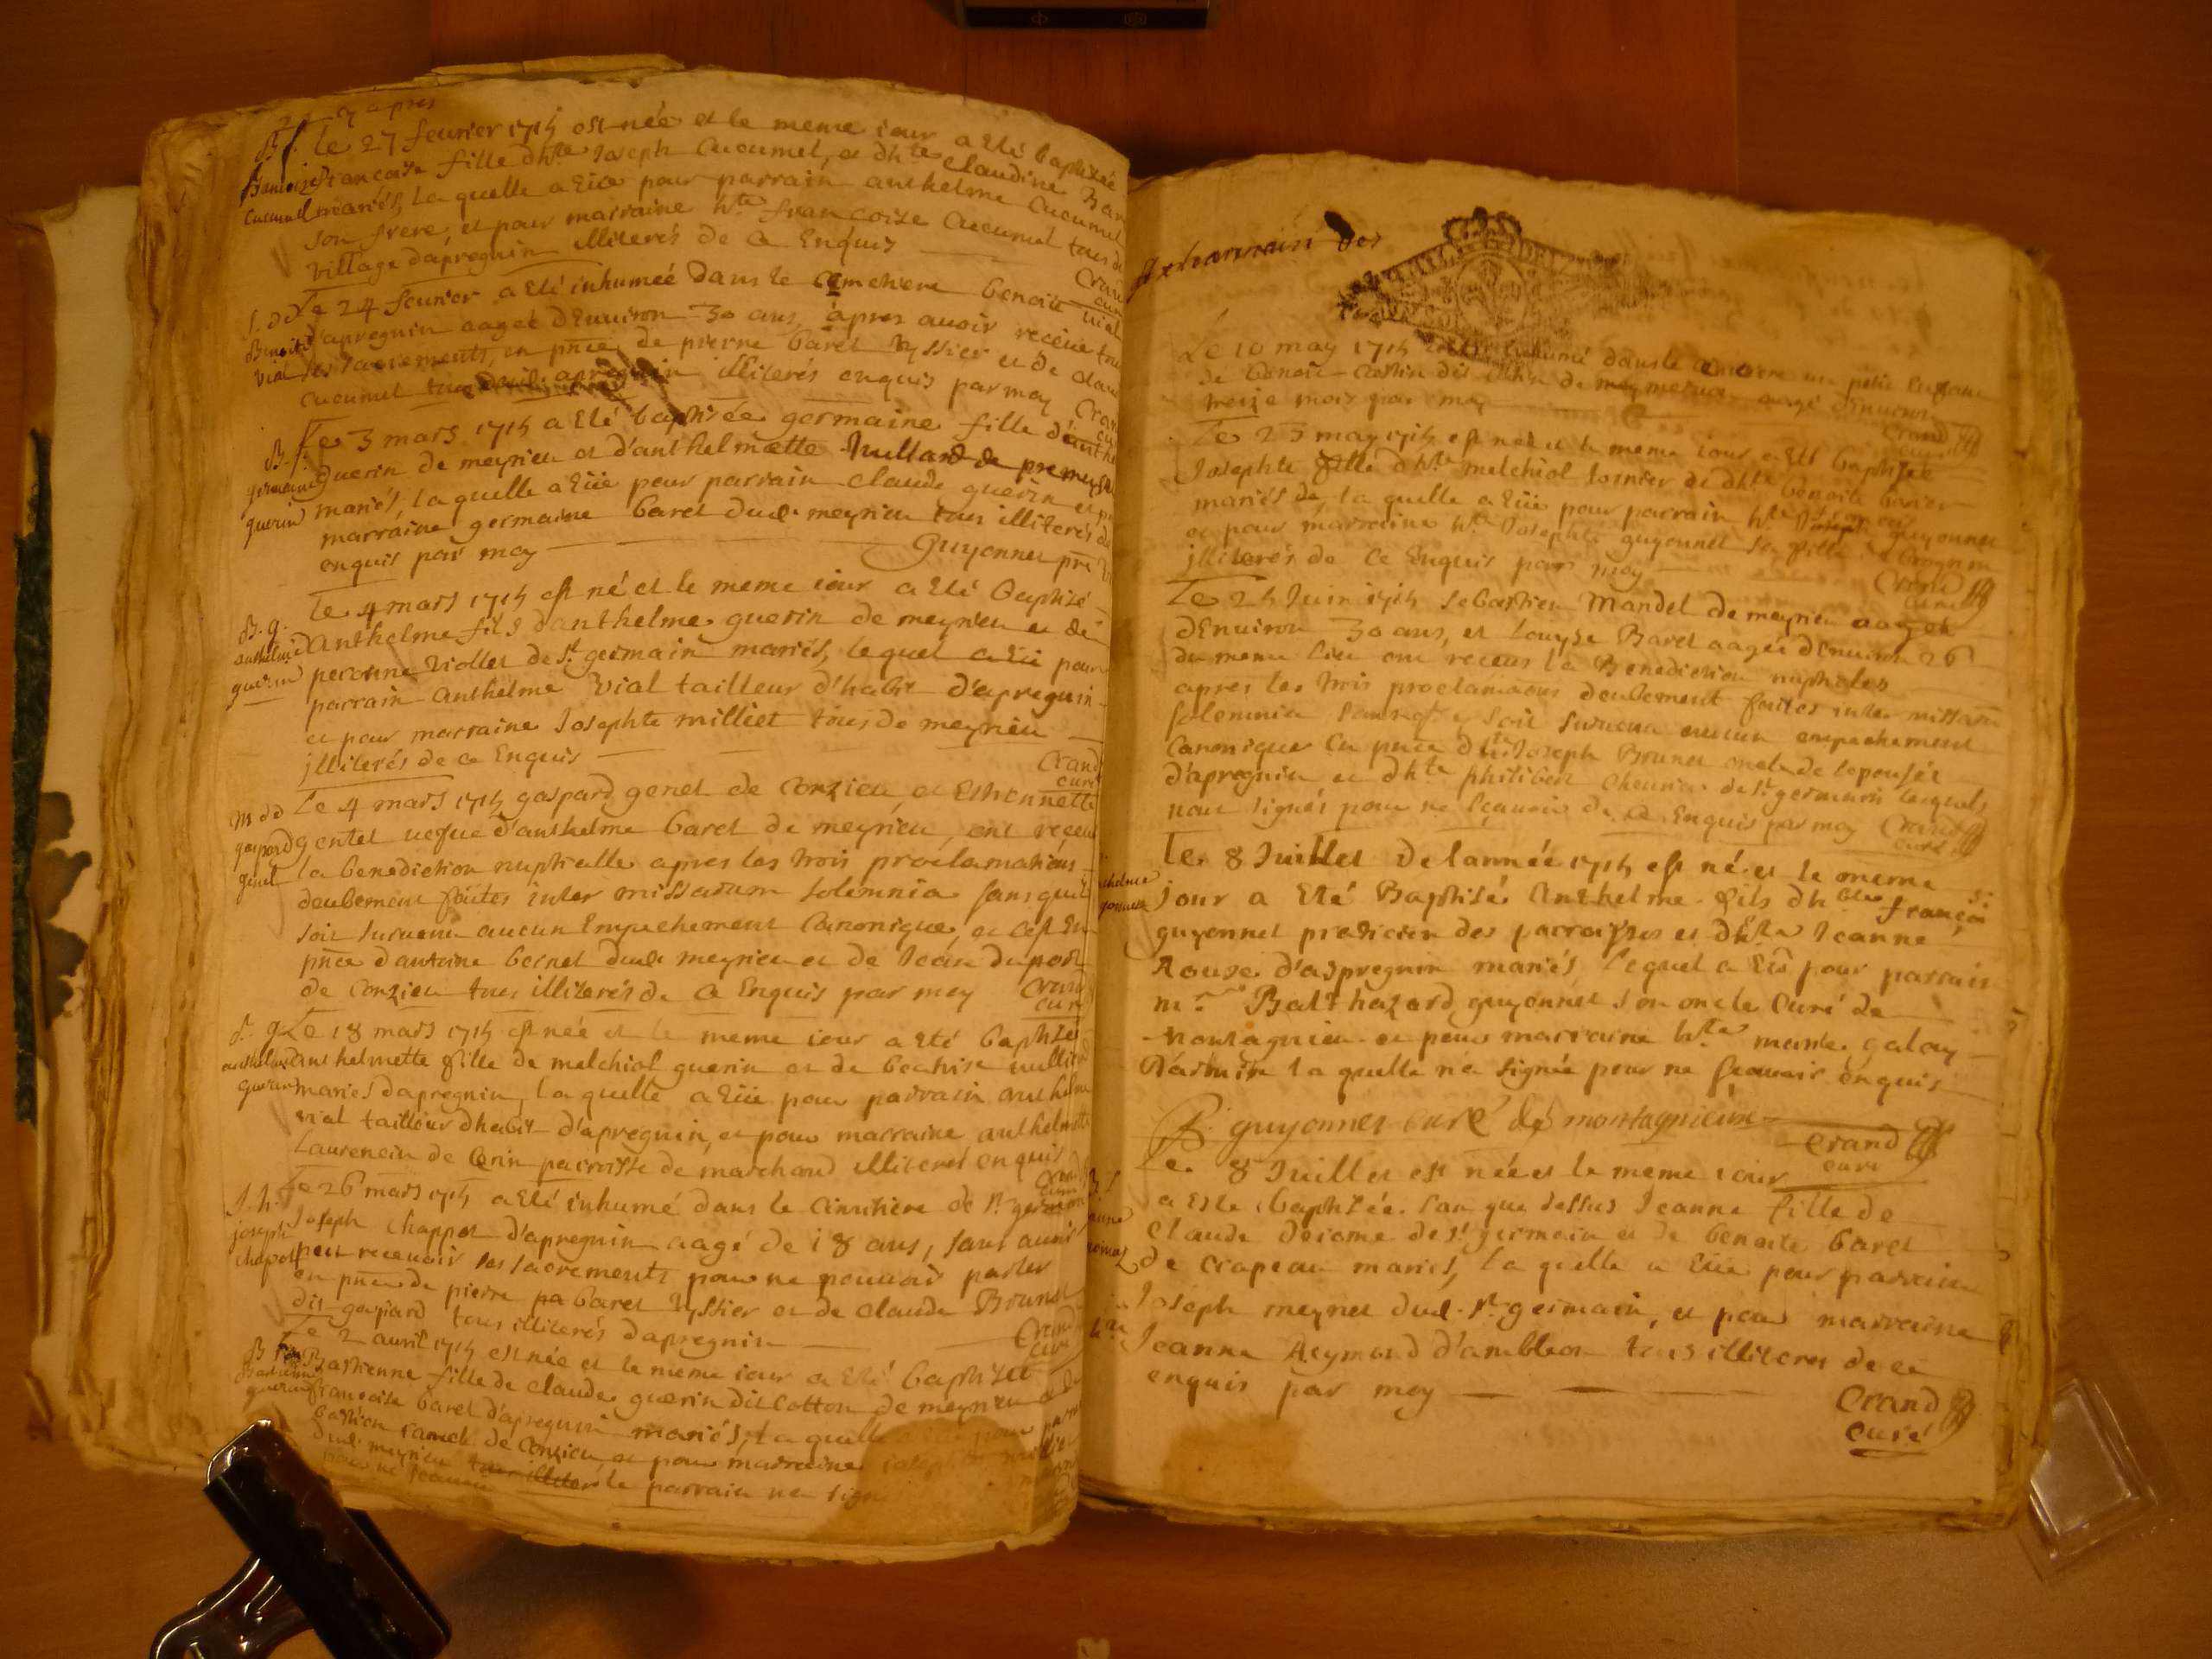 le 27 feurier 1715 est née et le meme iour a Eté baptisée
francoise fille dhte Joseph Cucumel, et dhte Claudine
mariés, la quelle a Eüe pour parrain anthelme Cucumel
son frere, et pour marraine hte francoise Cucumel tous de
village d'apregnin illiterés de ce Enquis
Le 24 feurier a Eté inhumée dans le cimetiere benoite vial
d'apregnin aagée d'Enuiron 30 ans, apres auoir receue tous
les sacrements, en pnce de pierre baret tissier et de claude
cucumel illiterés enquis par moy
Benoite
vial
Le 3 mars 1715 a Eté baptisée germaine fille d'anthelme
guerin de meyrieu et d'anthelmette Jullard de premeysel
mariés, la quelle a Eüe pour parrain claude guerin et pour
marraine germaine baret dud. meyrieu tous illiterés de
enquis par moy
Guyonnet pre
B. f.
germaine
guerin
Le 4 mars 1715 est né et le meme iour a Eté baptisé
Anthelme fils d'anthelme guerin de meyrieu et de
peronne Viollet de st germain mariés, lequel a Eü pour
parrain anthelme Vial tailleur d'habit d'apregnin
et pour marraine Josephte milliet tous de meyrieu
jlliterés de ce Enquis
Crand
curé
B. g.
anthelme
guerin
Le 4 mars 1715 gaspard genet de Conzieu, et Ethiennette
gentet uefue d'anthelme baret de meyrieu, ont receu
la benediction nuptialle apres les trois proclamations
deubement faites inter missarum solemnia sans quil
soit suruenu aucun Empechement Canonique, et cest En
pnce d'antoine bernet dud. meyrieu et de Jean dupont
de Conzieu tous illiterés de ce Enquis par moy
Crand
curé
gaspard
genet
Le 18 mars 1715 est née et le meme iour a Eté baptisée
anthelmette fille de melchiol guerin et de beatrise
mariés d'apregnin, la quelle a Eüe pour parrain anthelme
vial tailleur dhabit d'apregnin, et pour marraine anthelmette
Laurencin de Cerin parroisse de marchand illiteres enquis
anthelmette
guerin
Le 26 mars 1715 a Eté inhumé dans le Cimitiere de st germain
Joseph Chappot d'apregnin aagé de 18 ans, sans auoir
peu receuoir les sacrements pour ne pouuoir parler
en pnce de pierre baret tissier et de claude Brunet
dit gaspard tous illiterés d'apregnin
Crand
curé
joseph
chapot
Le 2 auril 1715 est née et le meme iour a Eté baptisée
Bastienne fille de claude guerin dit Cotton de meyrieu et de
françoise baret d'apregnin mariés, la quelle
bastien de Conzieu et pour marraine
dud. meyrieu le parrain
Le 10 may 1715 inhumé dans le un petit Enfant
de benoit aagé d'Enuiron
treize mois par moy
Crand
Le 23 may 1715 est née et le meme iour a Eté baptisée
Josephte fille dhte melchiol tornier et dhte benoite
mariés de, la quelle a Eüe pour parrain hte Joseph guyonnet
et pour marraine hte Josephte guyonnet sa fille
jlliterés de ce Enquis par moy
Crand
curé
Le 25 Juin 1715 Sebastien Mandel de meyrieu aagé
d'Enuiron 30 ans, et Louyse Baret aagée d'Enuiron 26
du meme lieu ont receus la Benediction nuptiales
apres les trois proclamaons deubement faites inter missarum
solemnia soit suruenu aucun empechement
Canonique En pnce dhte Joseph Brunet oncle de lepousée
d'apregnin et dhte philibert de st germain lesquels
nont signés pour ne sçauoir de ce Enquis par moy Crand
curé
Le 8 Juillet de lannée 1715 est né et le meme
Jour a Eté Baptisé Anthelme fils dhble françois
guyonnet praticien des parroisses et dhte Jeanne
Rouse d'aspregnin mariés, lequel a Eü pour parrain
mre Balthazard guyonnet son oncle Curé de
montagnieu et pour marraine hte marie galay
la quelle n'a signée pour ne sçauoir enquis
B. guyonnet curé de montagnieu
Crand
curé
Le 8 Juillet est née et le meme iour
a este baptisée. Par que dessus Jeanne fille de
Claude de st germain et de benoite baret
de crapeau mariés, la quelle a Eüe pour parrain
Joseph meynet dud. st germain, et pour marraine
Jeanne Reymond d'ambleon tous illiteres de ce
enquis par moy
Crand
curé